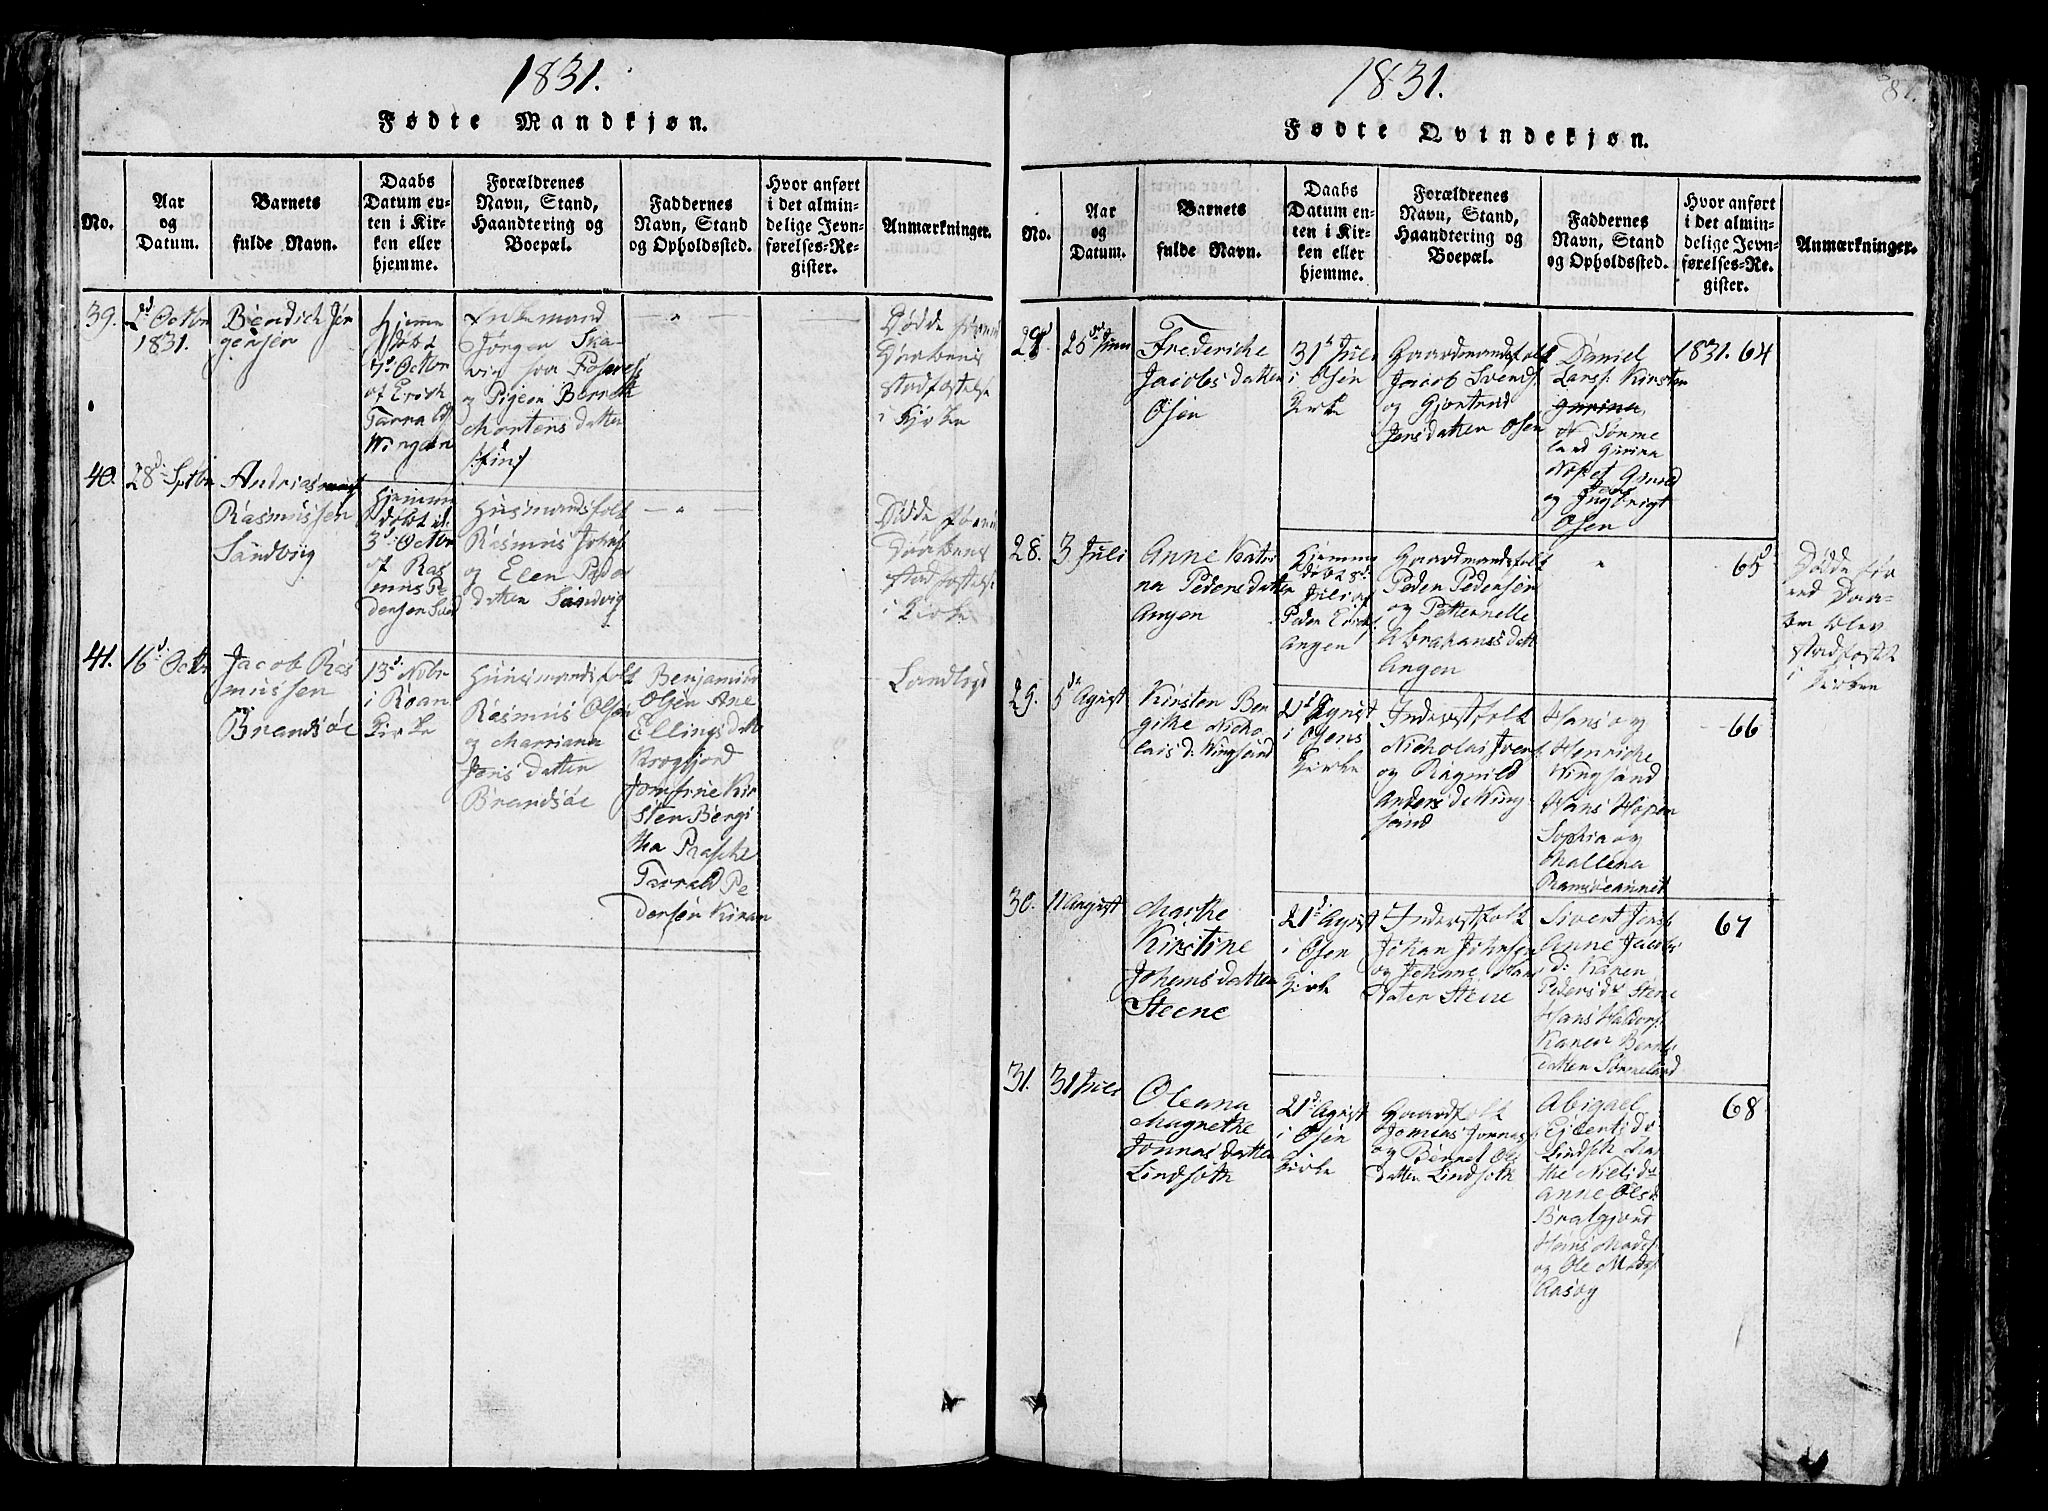 1831.
Fødte Mandkjøn.
No.
Aar
og
Datum.
Barnets
fulde Navn.
Daabs
Datum en-
ten i Kir-
ken eller
hjemme.
Forældrenes
Navn, Stand,
Haandtering og
Boepæl.
Faddernes
Navn, Stand
og Opholdssted.
Hvor anført
i det almin-
delige Jevn-
førelses-Re-
gister.
Anmærkninger.
39.
Octbr
1831.
Bendich Jør
gensen
Hjemme
døbt
7d Octbr
af Erich
Wingsan
Enkemand
Jørgen Ska-
vig
og Pigen Bereth
Mortensdatter
Dødde
Daabens
stadfæstelse
i Kirke
40.
28d Septbr
Andrias
Rasmussen
Sandvig
Hjemme
døbt
3d Octbr
af Ras
mus Pe
dersen
Husmandsfolk
Rasmus Johns
og Elen Peder
datter Sandvig
Dødde
Daabens
stadfæstelse
i Kirke
41.
16d Octbr
Jacob Ras
mussen
Brandsøe
13d Novbr
i Roan
Kirke
Huusmandsfolk
Rasmus Olsen
og Marriana
Jensdatter
Brandsøe
Benjamin
Olsen Ane
Ellingsdatter
Krogfjord
Jomfrue Kir
sten Bergi
tha Paasche
Tarrald Pe
dersen Kiran
1831.
81.
Fødte Qvindekjøn.
No.
Aar
og
Datum.
Barnets
fulde Navn.
Daabs
Datum en-
ten i Kir-
ken eller
hjemme.
Forældrenes
Navn, Stand,
Haandtering og
Boepæl.
Faddernes
Navn, Stand
og Opholdssted.
Hvor anført
i det almin-
delige Jevn-
førelses-Re-
gister.
Anmærkninger.
25 Juni
Frederiche
Jacobsdatter
Osen
31d Juli
i Osen
Kirke
Gaardmandsfolk
Jacob Svends
og Gjertrud
Jensdatter Osen
Daniel
Larss. Kirsten
Gurina
N Sørme
land Gurina
Jens
og Ingbrigt
Osen
1831. 64
28.
3 Juli
Anne Katri
na Pedersdatter
Angen
Hjemme
døbt 8d
Juli af
Peder Erichs
Angen
Gaardmandsfolk
Peder Pedersen
og Petternelle
Abrahamsdatt
Angen
65
Dødde før
end Daa-
ben blev
stadfæstet
i Kirken
29.
5de Agust
Kirsten Ben
gike Nicho
lais d: Wingsand
21d Agust
i Osens
Kirke
Inderstfolk
Nicholai Ivers.
og Ragnild
Anders d Wing
sand
Hans og
Henriche
Wingsand
Hans Hopen
Sophia og
Mallena
Ramsøeannet
66
30.
11 August
Marthe
Kirstine
Johansdatter
Steene
21d Agust
i Osen
Kirke
Inderstfolk
Johan Johnsen
og Johane Hans
dater Steene
Sivert Jens
Anne Jacobs
d: Karen
Peders dr Stene
Hans Haldors.
Karen Bernts
datter Sørmeland
67
31.
31 Juli
Oleana
Magrethe
Jonnasdatter
Lindsøth
21d Agust
i Osen
Kirke
Gaardfolk
Jonnas Jonnas
og Berret Ols
datter Lindsøth
Abigael
Ejlerts dr
Lindseth Mar
the Niels dr
Anne Ols d
Bratgjerd
Hans Mads.
og Ole Mads.
Aasøy
68